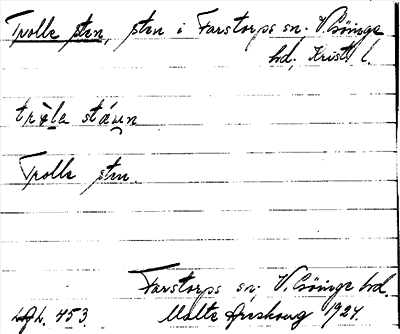 Trolle sten, sten i Farstorps sn. V. Göinge
hd, Krist. l.
tròle stáun
Trolle sten.
Farstorps sn. V. Göinge hd.
453. Malte Areskoug 1924.